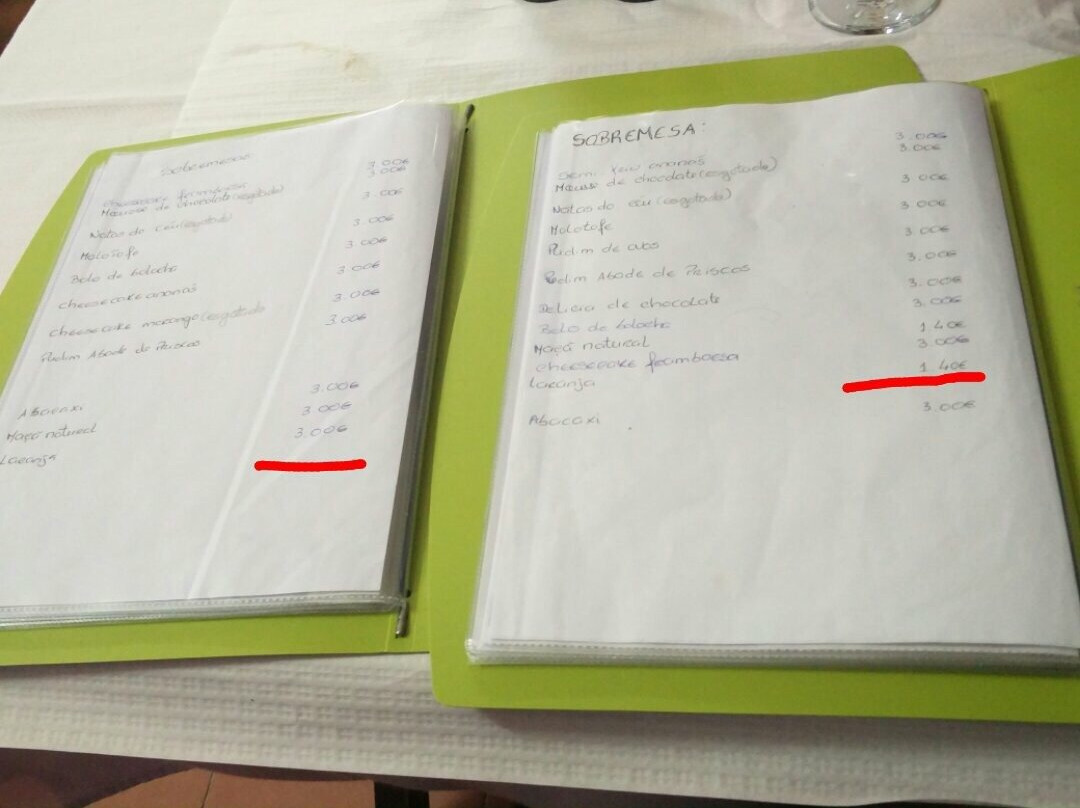 Sobremesa
Cheesecake framboesa 3.00€
Mousse de chocolate (esgotado) 3.00€
Natas do céu (esgotado) 3.00€
Molotofe 3.00€
Bolo de bolacha 3.00€
Cheesecake ananás 3.00€
Cheesecake morango (esgotado 3.00€
Pudim Abade de Priscos 3.00€
Abacaxi 3.00€
Maçã natural 3.00€
Laranja 3.00€
SOBREMESA:
Semi frio ananás 3.00€
Mousse de chocolate (esgotado) 3.00€
Natas do céu (esgotado) 3.00€
Molotofe 3.00€
Pudim de ovos 3.00€
Pudim Abade de Priscos 3.00€
Delicia de chocolate 3.00€
Bolo de bolacha 3.00€
Maçã natural 1.40€
Cheesecake framboesa 3.00€
Laranja 1.40€
Abacaxi 3.00€